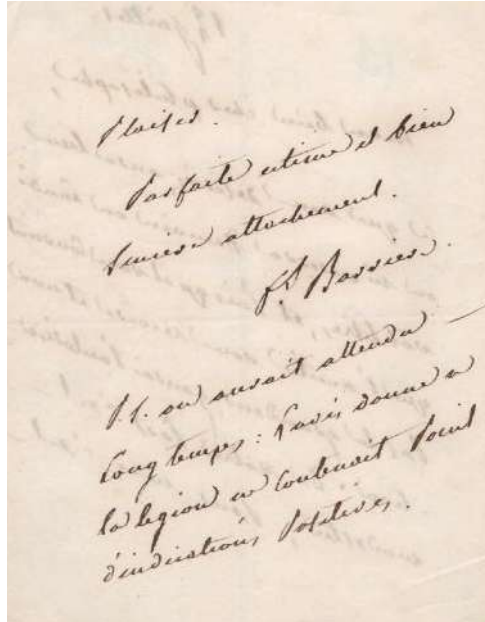 plaisir.
Parfaite estime et bien
sincere attachement.
fs Barriere.
P.S. on aurait attendu —
long temps : l'avis donné a
la legion ne contenait point
d'indications positives.